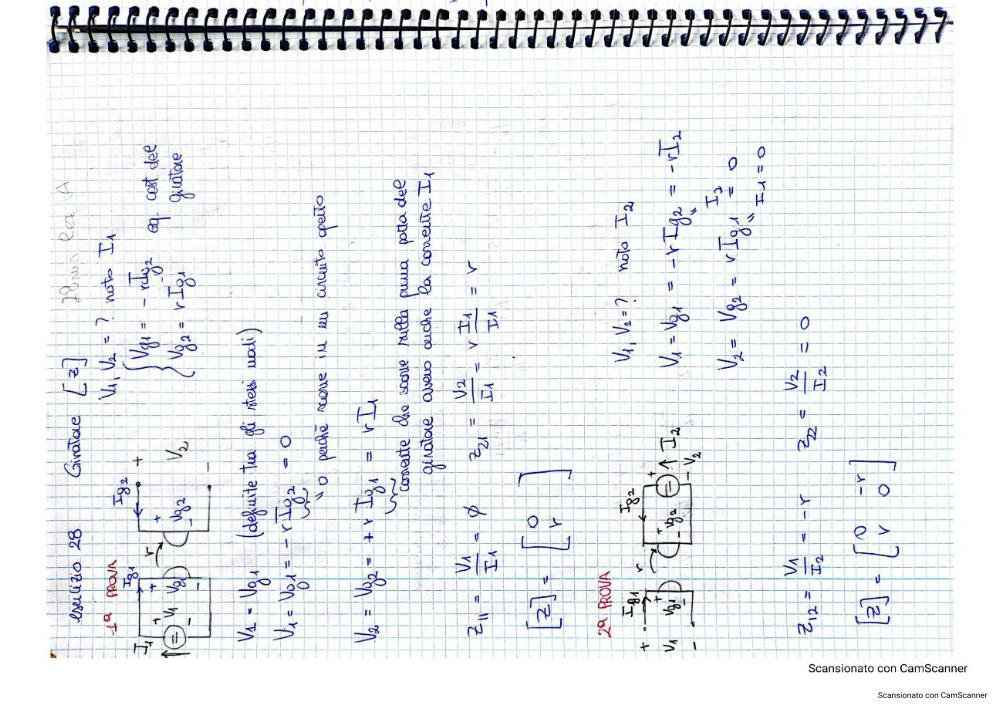 esercizio 28 Giratore [Z]
1ª PROVA
V1, V2 = ? noto I1
{ Vg1 = - rIg2 eq. cost del
Vg2 = rIg1 giratore
I1 + V1 - Ig1 + Vg1 - r Ig2 + Vg2 - + V2 -
V1 = Vg1 (definite tra gli stessi nodi)
V1 = Vg1 = - r Ig2 = 0
"0 perchè siamo in un circuito aperto
V2 = Vg2 = + r Ig1 = r I1
corrente che scorre nella prima porta del
giratore ovvero anche la corrente I1
Z11 = V1/I1 = ∅ Z21 = V2/I1 = r I1/I1 = r
[Z] = [ 0
r ]
2ª PROVA
V1, V2 = ? noto I2
+ V1 - Ig1 + Vg1 - r Ig2 + Vg2 - + I2 - V2
V1 = Vg1 = - r Ig2 = - r I2
I2
V2 = Vg2 = r Ig1 = 0
I1 = 0
Z12 = V1/I2 = - r Z22 = V2/I2 = 0
[Z] = [ 0 -r
r 0 ]
Scansionato con CamScanner
Scansionato con CamScanner